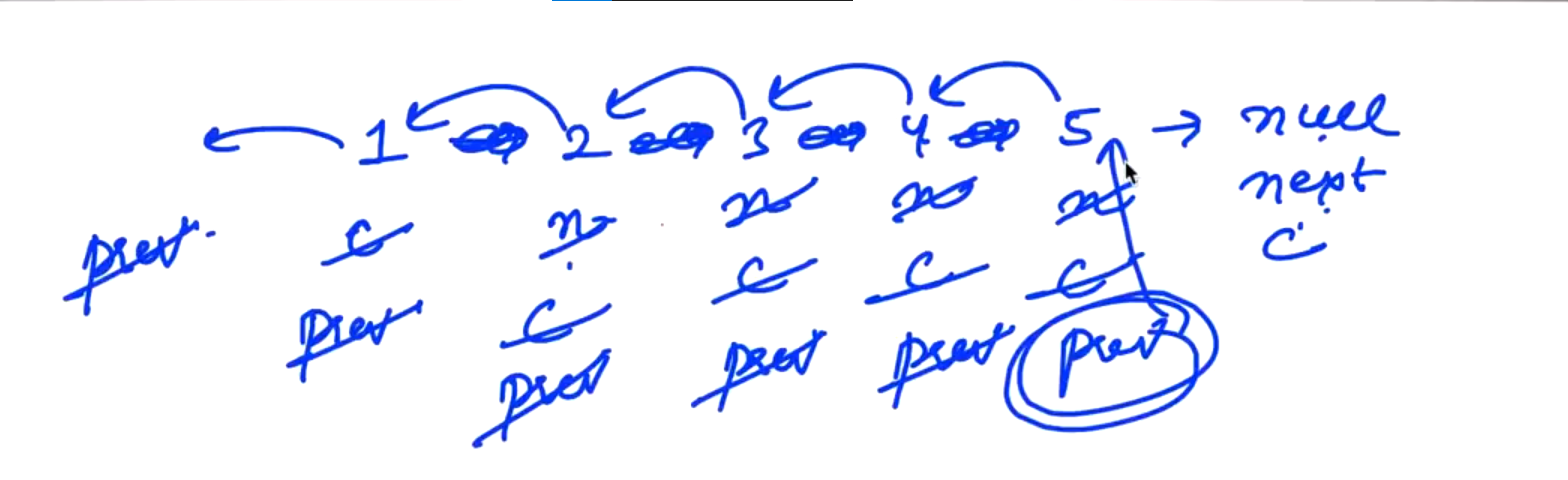 1 2 3 4 5 → null
prev c n n n n next
c c c c c
prev prev prev prev prev